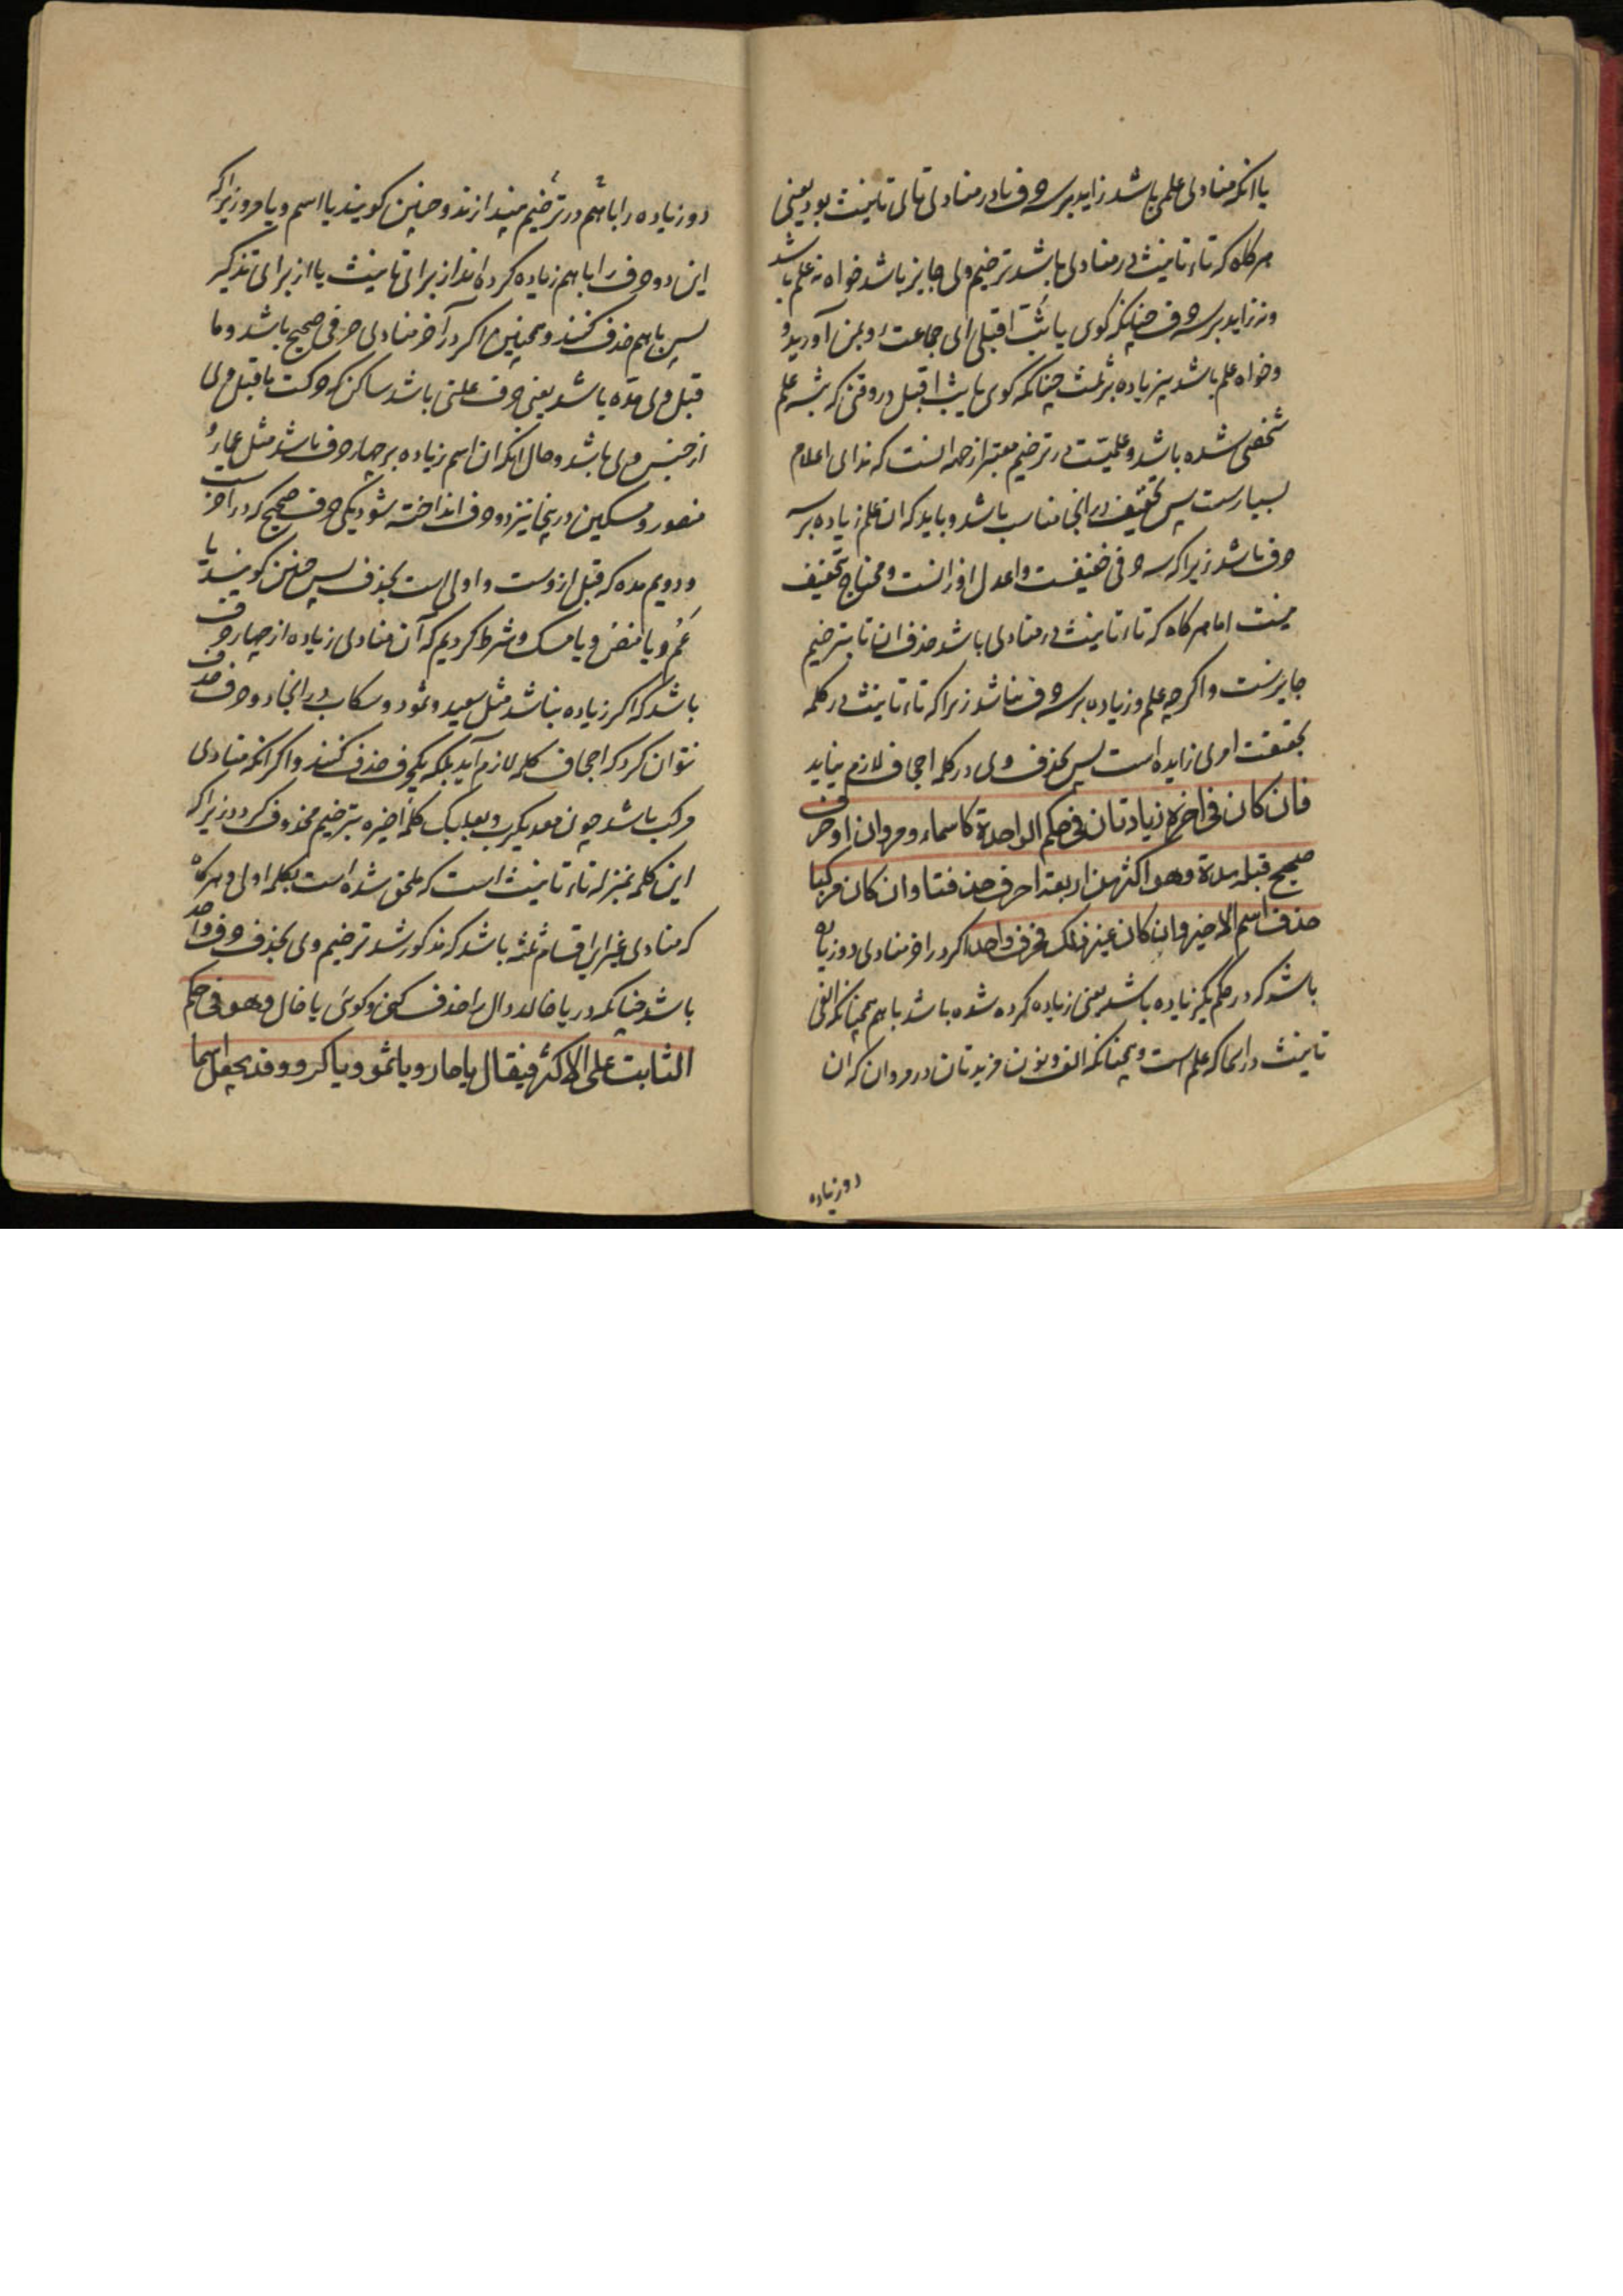 یا انکه منادی علمی باشد زاید بر سه حرف تا در منادی تای تانیث بود یعنی
هرکاه که تاء تانیث در منادی باشد ترخیم وی جایز باشد خواه نه علم باشد
و نه زاید بر سه حرف چنانکه کوی یا ثبت اقبلی ای جماعت رو بمن آورید و
و خواه علم باشد نیز زیاده بر ثلث چنانکه کوی یا ثب اقبل در وقتی که ثبه علم
شخصی شده باشد و علمیت در ترخیم معتبر از جهة انست که ندای اعلام
بسیارست پس تخفیف در انجا مناسب باشد و باید که ان علم زیاده بر سه
حرف باشد زیرا که سه حرفی خفیفست و اعدل اوزانست و محتاج تخفیف
نیست اما هرکاه که تاء تانیث در منادی باشد حذف ان تا بترخیم
جایزست و اکرچه علم و زیاده بر سه حرف نباشد زیرا که تاء تانیث در کلمه
بحقیقت امری زایده است پس بحذف وی در کلمه اجحاف لازم نیاید
فان کان فی اخره زیادتان فی حکم الواحدة کاسماء و مروان او حرف
صحیح قبله مدة وهو اکثر من اربعة احرف حذفتا وان کان مرکبا
حذف اسم الاخیر وان کان غیر ذلک فحرف واحد اکر در اخر منادی دو زیاده
باشد که در حکم یک زیاده باشد یعنی زیاده کرده شده باشد باهم همچنانکه الفی
تانیث در اسما که علم است و همچنانکه الف و نون مزیدتان در مروان که ان
دو زیاده
دو زیاده را باهم در ترخیم بیندازند و چنین کویند یا اسم و یا مرو زیرا که
این دو حرف را باهم زیاده کرده اند از برای تانیث یا از برای تذکیر
پس باهم حذف کنند و همچنین اکر در آخر منادی حرفی صحیح باشد و ما
قبل وی مده باشد یعنی حرف علتی باشد ساکن که حرکت ماقبل وی
از جنس وی باشد و حال انکه ان اسم زیاده بر چهار حرف باشد مثل عمار و
منصور و مسکین درینجا نیز دو حرف انداخته شود یکی حرف صحیح که در اخرست
و دویم مده که قبل ازوست و اولی است بحذف پس چنین کویند یا
عم و یا منص و یا مسک و شرط کردیم که آن منادی زیاده از چهار حرف
باشد که اکر زیاده نباشد مثل سعید و ثمود و سکاب در انجا دو حرف حذف
نتوان کرد که اجحاف کلمه لازم آید بلکه یکحرف حذف کنند و اکر انکه منادی
مرکب باشد چون معدیکرب و بعلبک کلمه اخیره بترخیم محذوف کردد زیرا که
این کلمه بمنزله تاء تانیث است که ملحق شده است بکلمه اولی و هرکاه
که منادی غیر این اقسام ثلثه باشد که مذکور شد ترخیم وی بحذف حرف واحد
باشد چنانکه در یا خالد دال را حذف کنی و کوی یا خال وهو فی حکم
الثابت علی الاکثر فیقال یا حار و یا ثمو و یا کرو وقد یجعل اسما